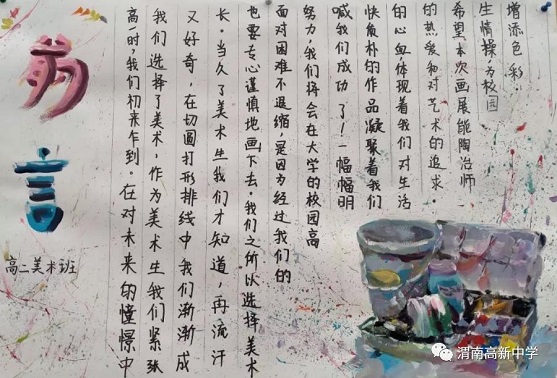 前言
高二美术班
高一时,我们初来乍到。在对未来的憧憬中
我们选择了美术,作为美术生我们紧张
又好奇,在切圆打形排线中我们渐渐成
长。当久了美术生我们才知道,再流汗
也要专心谨慎地画下去。我们之所以选择美术
面对困难不退缩,是因为经过我们的
努力,我们将会在大学的校园高
喊我们成功了!一幅幅明
快质朴的作品凝聚着我们
的心血,体现着我们对生活
的热爱和对艺术的追求。
希望本次画展能陶冶师
生情操,为校园
增添色彩
渭南高新中学